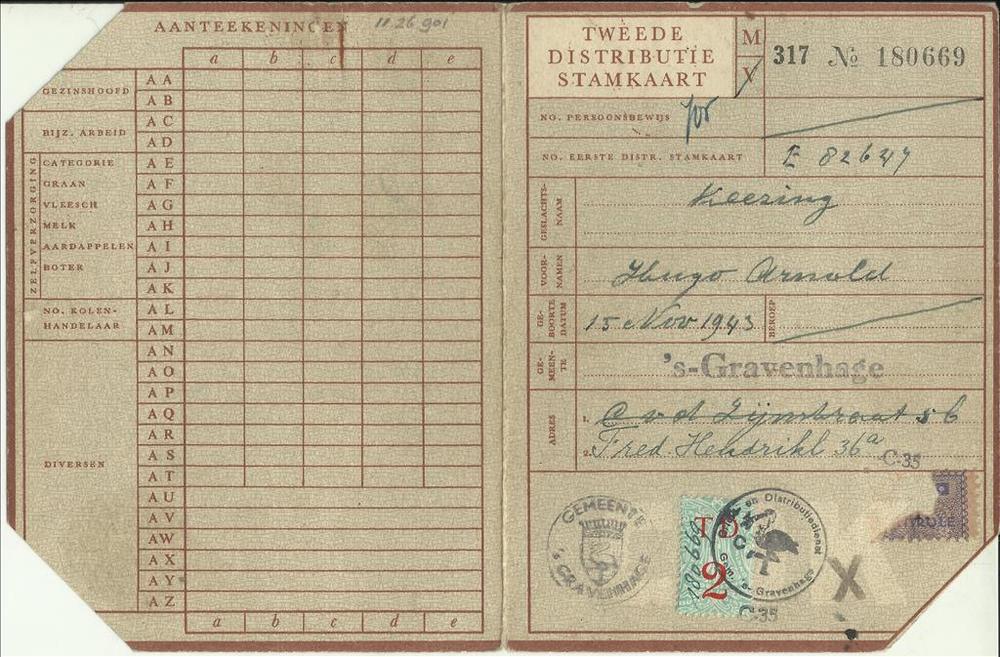 AANTEEKENINGEN 11.26 901
a b c d e
GEZINSHOOFD
A A
A B
BIJZ. ARBEID
A C
A D
ZELFVERZORGING
CATEGORIE A E
GRAAN A F
VLEESCH A G
MELK A H
AARDAPPELEN A I
BOTER A J
A K
NO. KOLEN-
HANDELAAR
A L
A M
A N
A O
A P
A Q
A R
DIVERSEN
A S
A T
A U
A V
A W
A X
A Y
A Z
a b c d e
TWEEDE
DISTRIBUTIE
STAMKAART
M
V
317 № 180669
NO. PERSOONSBEWIJS
NO. EERSTE DISTR. STAMKAART E 82647
GESLACHTS-
NAAM
Keezing
VOOR-
NAMEN
Hugo Arnold
GE-
BOORTE
DATUM
15 Nov 1943
BEROEP
GE-
MEEN-
TE
's-Gravenhage
ADRES
1. C v d Lijnstraat 56
2. Fred. Hendrikl 36a
C-35
GEMEENTE
'S GRAVENHAGE
TD
2
180669
en Distributiedienst
Gem. 's-Gravenhage
C-35
X